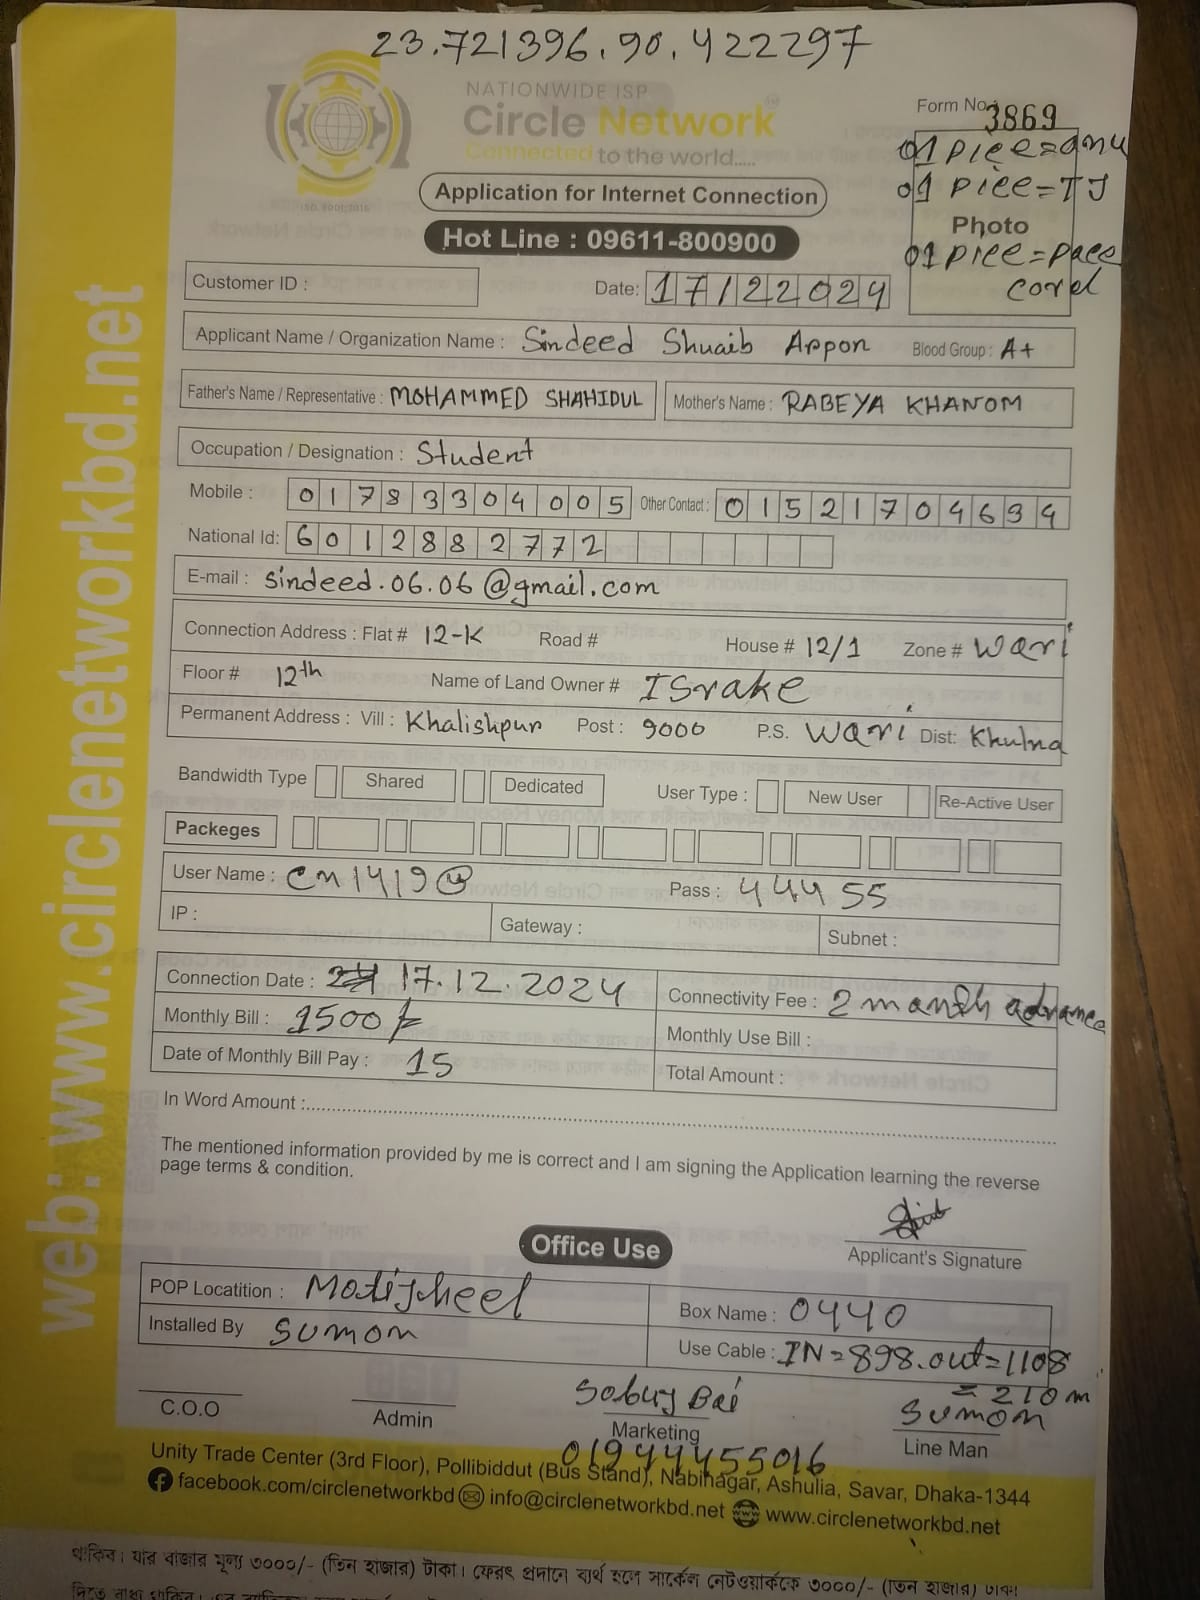 23.721396.90.422297
NATIONWIDE ISP
Circle Network
Connected to the world.....
ISO: 9001:2015
Form No. 3869
01 piece = onu
01 piece = TJ
Photo
01 piece = pace
cord
Application for Internet Connection
Hot Line : 09611-800900
Customer ID :
Date: 17122024
Applicant Name / Organization Name : Sindeed Shuaib Arpon Blood Group : A+
Father's Name / Representative : MOHAMMED SHAHIDUL Mother's Name : RABEYA KHANOM
Occupation / Designation : Student
Mobile : 01783304005 Other Contact : 01521704634
National Id: 6012882772
E-mail : sindeed.06.06@gmail.com
Connection Address : Flat # 12-K Road # House # 12/1 Zone # Wari
Floor # 12th Name of Land Owner # ISrake
Permanent Address : Vill : Khalishpur Post : 9000 P.S. Wari Dist: Khulna
Bandwidth Type Shared Dedicated User Type : New User Re-Active User
Packeges
User Name : cn1419@ Pass : 44455
IP : Gateway : Subnet :
Connection Date : 17.12.2024 Connectivity Fee : 2 month advance
Monthly Bill : 1500/- Monthly Use Bill :
Date of Monthly Bill Pay : 15 Total Amount :
In Word Amount :
The mentioned information provided by me is correct and I am signing the Application learning the reverse
page terms & condition.
Applicant's Signature
Office Use
POP Locatition : Motijheel Box Name : 0440
Installed By Sumon Use Cable : IN=898.out=1108
= 210m
C.O.O Admin Sobuj Bai Marketing Sumon Line Man
01944455016
Unity Trade Center (3rd Floor), Pollibiddut (Bus Stand), Nabinagar, Ashulia, Savar, Dhaka-1344
facebook.com/circlenetworkbd info@circlenetworkbd.net www.circlenetworkbd.net
web: www.circlenetworkbd.net
থাকিব। যার বাজার মূল্য ৩০০০/- (তিন হাজার) টাকা। ফেরৎ প্রদানে ব্যর্থ হলে সার্কেল নেটওয়ার্ককে ৩০০০/- (তিন হাজার) টাকা